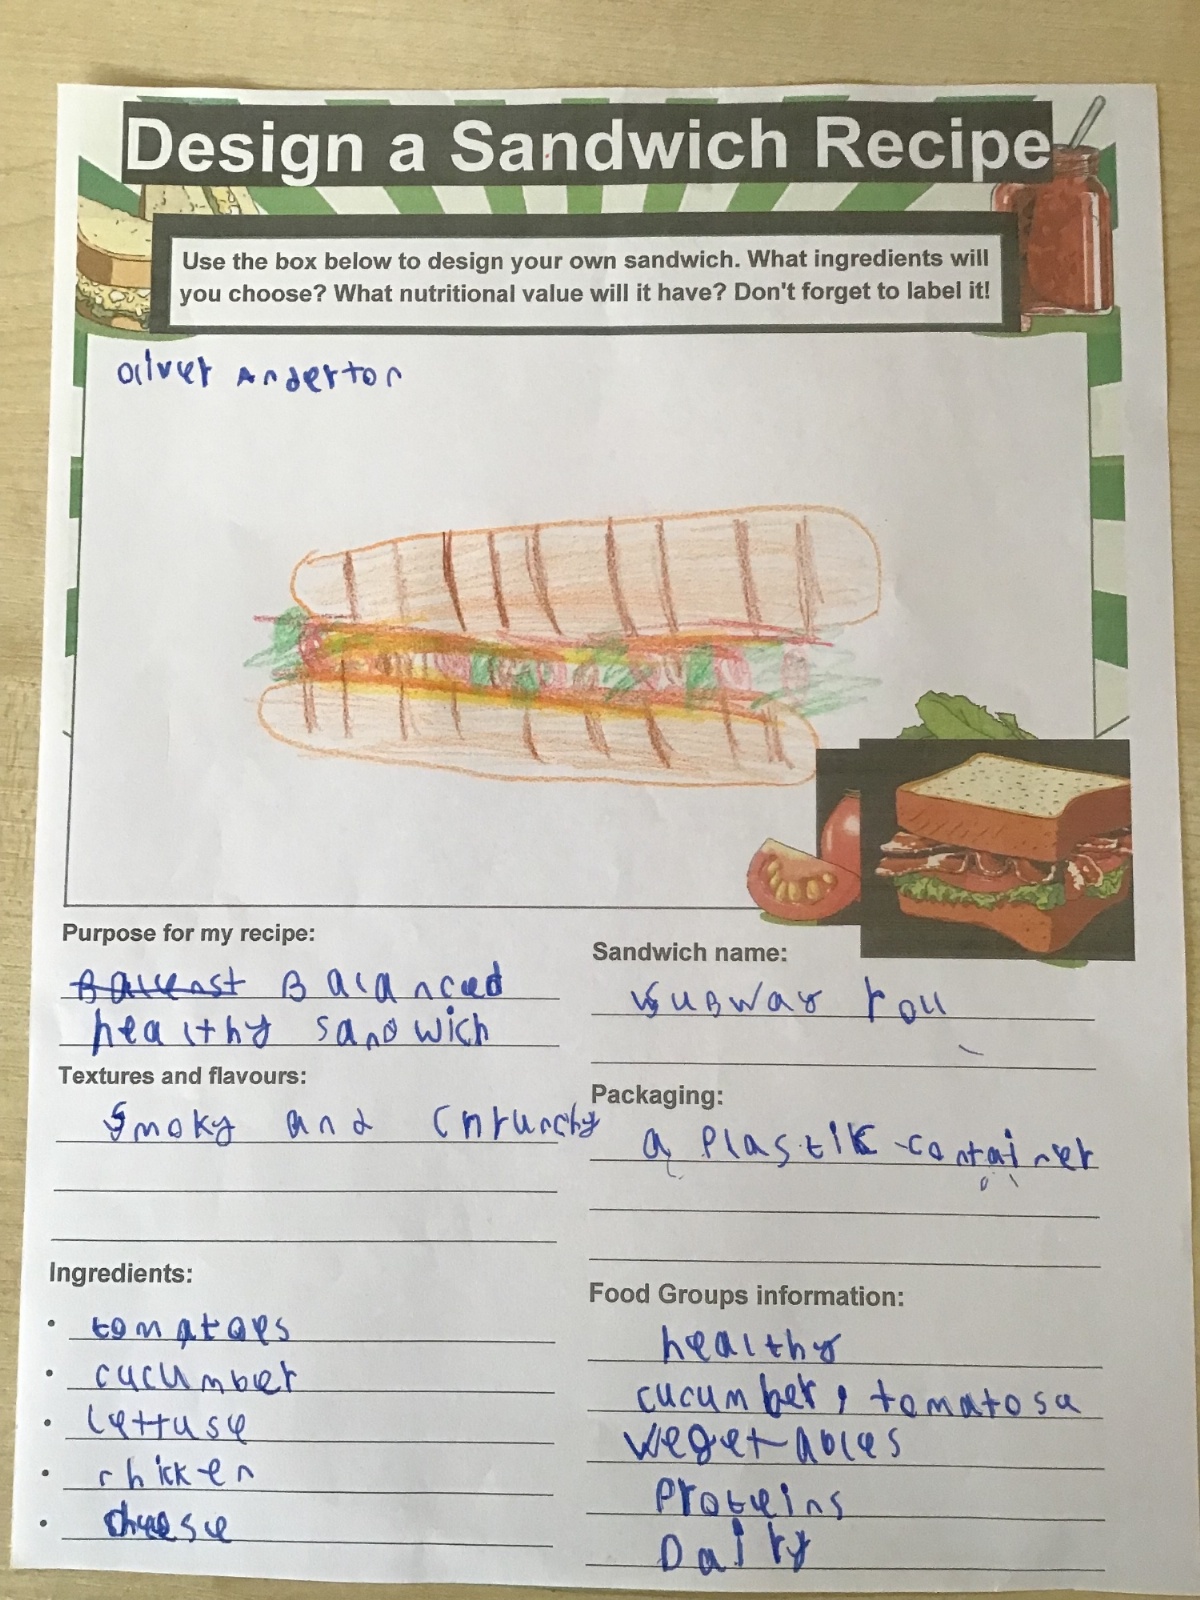 Design a Sandwich Recipe
Use the box below to design your own sandwich. What ingredients will
you choose? What nutritional value will it have? Don't forget to label it!
Oliver Anderton
Purpose for my recipe:
Balenst Balanced
healthy sandwich
Sandwich name:
Subway roll
Textures and flavours:
Smoky and Cnrunchy
Packaging:
a Plastik container
Ingredients:
• tomatoes
• cucumber
• lettuse
• chicken
• cheese
Food Groups information:
healthy
cucumber, tomatosa
vegetables
Proteins
Dairy